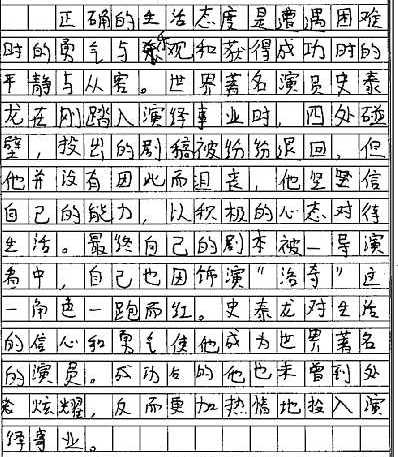 正确的生活态度是遭遇困难
时的勇气与乐观和获得成功时的
平静与从容。世界著名演员史泰
龙在刚踏入演绎事业时，四处碰
壁，投出的剧稿被纷纷退回，但
他并没有因此而沮丧，他坚坚信
自己的能力，以积极的心态对待
生活。最终自己的剧本被一导演
看中，自己也因饰演"洛奇"这
一角色一跑而红。史泰龙对生活
的信心和勇气使他成为世界著名
的演员。成功后的他也未曾到处
炫耀，反而更加热情地投入演
绎事业。